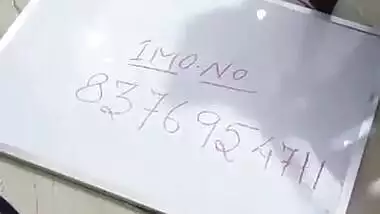 IMO.NO
8376954711